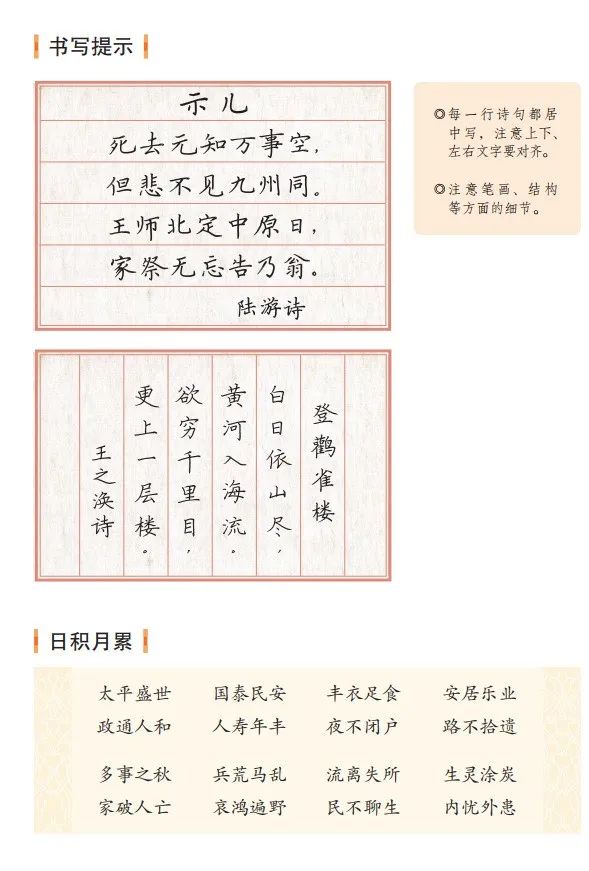 书写提示
示儿
死去元知万事空，
但悲不见九州同。
王师北定中原日，
家祭无忘告乃翁。
陆游诗
◎每一行诗句都居
中写，注意上下、
左右文字要对齐。
◎注意笔画、结构
等方面的细节。
登鹳雀楼
白日依山尽，
黄河入海流。
欲穷千里目，
更上一层楼。
王之涣诗
日积月累
太平盛世 国泰民安 丰衣足食 安居乐业
政通人和 人寿年丰 夜不闭户 路不拾遗
多事之秋 兵荒马乱 流离失所 生灵涂炭
家破人亡 哀鸿遍野 民不聊生 内忧外患